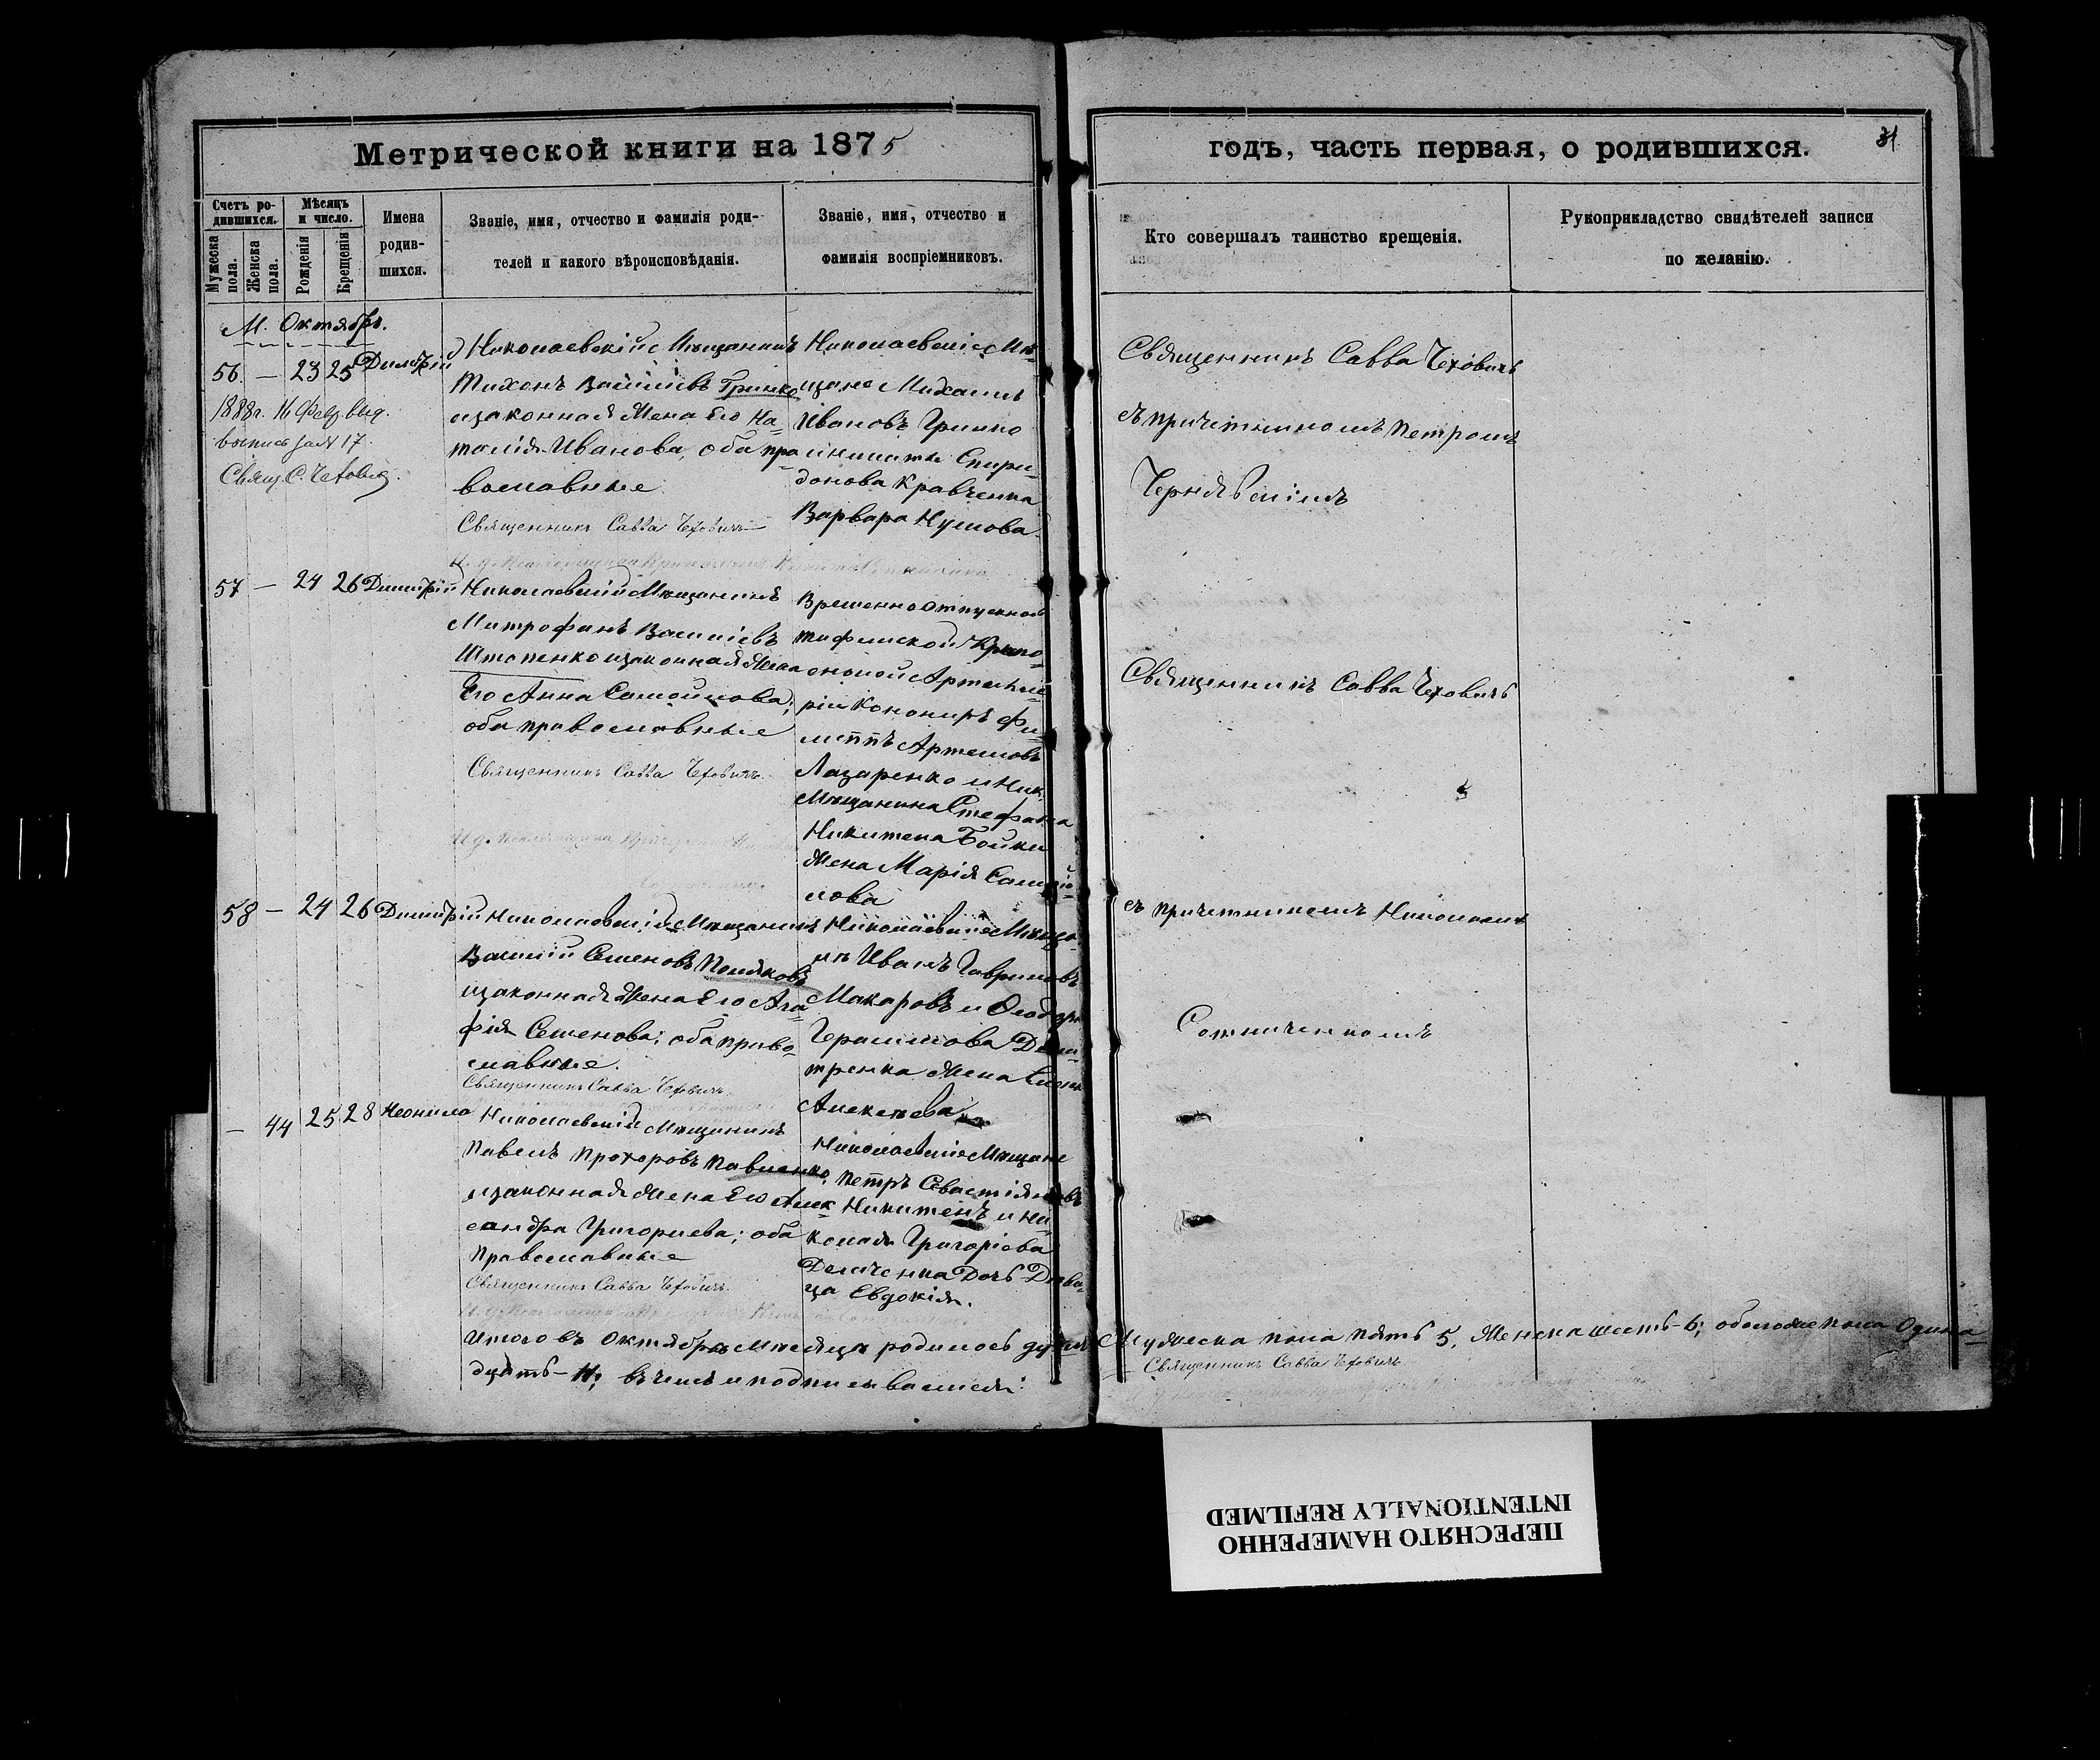 Метрической книги на 1875
годъ, часть первая, о родившихся.
31
Счетъ ро-
дившихся.
Мужеска
пола.
Женска
пола.
Мѣсяцъ
и число.
Рожденія
Крещенія
Имена
родив-
шихся.
Званіе, имя, отчество и фамилія роди-
телей и какого вѣроисповѣданія.
Званіе, имя, отчество и
фамилія воспріемниковъ.
Кто совершалъ таинство крещенія.
Рукоприкладство свидѣтелей записи
по желанію.
М. Октябрь.
56. — 23 25 Димитрій
1888г. 16 Февр. выд.
выпись за № 17.
Свящ. С. Чехович.
Николаевскій Мѣщанинъ
Тихонъ Василіевъ Гринко
и законная жена Его На-
талія Иванова, оба пра-
вославные
Священникъ Савва Чеховичъ
Николаевскіе Мѣ-
щане Михаилъ
Ивановъ Гринко
Спири-
донова Кравченка
Варвара
Священникъ Савва Чеховичъ
съ причетникомъ Петромъ
Чернявскимъ
57 — 24 26 Димитрій
Николаевскій Мѣщанинъ
Митрофанъ Василіевъ
Штопенко и законная жена
Его Анна Самойлова;
оба православные
Священникъ Савва Чеховичъ.
Временно отпускной
Артилле-
ріи Канониръ Фи-
липпъ Артемовъ
Лазаренко и Ник.
Мѣщанина Стефана
Никитена Бойки
жена Марія Самой-
лова
Священникъ Савва Чеховичъ
58 — 24 26 Димитрій
Николаевскій Мѣщанинъ
Василій Семеновъ Поляковъ
и законная жена Его Ага-
фія Семенова; оба право-
славные.
Священникъ Савва Чеховичъ.
Николаевскіе Мѣща-
не Иванъ Гавриловъ
Макаровъ и Ѳеодора
Герасимова
жена
Алексѣева
съ причетникомъ Николаемъ
Сотниченкомъ
— 44 25 28 Неонила
Николаевскій Мѣщанинъ
Павелъ Прохоровъ Павленко
и законная жена Его Алек-
сандра Григориева; оба
Православные
Священникъ Савва Чеховичъ.
Николаевскіе Мѣщане
Петръ Севастіяновъ
Никитенъ и Ни-
колая Григоріева
Демченка Дочь Дѣви-
ца Евдокія.
Итого въ Октябрѣ Мѣсяцѣ родилось душъ Мужеска пола пять 5, Женска шесть-6; обоего же пола Одина-
дцать-11; въ чемъ и подписываемся:
Священникъ Савва Чеховичъ.
ПЕРЕСНЯТО НАМЕРЕННО
INTENTIONALLY REFILMED